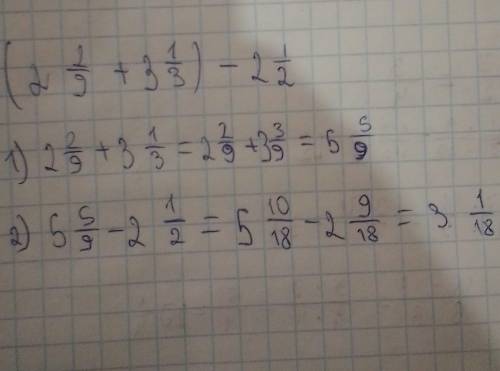 (2 2/9 + 3 1/3) - 2 1/2
1) 2 2/9 + 3 1/3 = 2 2/9 + 3 3/9 = 5 5/9
2) 5 5/9 - 2 1/2 = 5 10/18 - 2 9/18 = 3 1/18